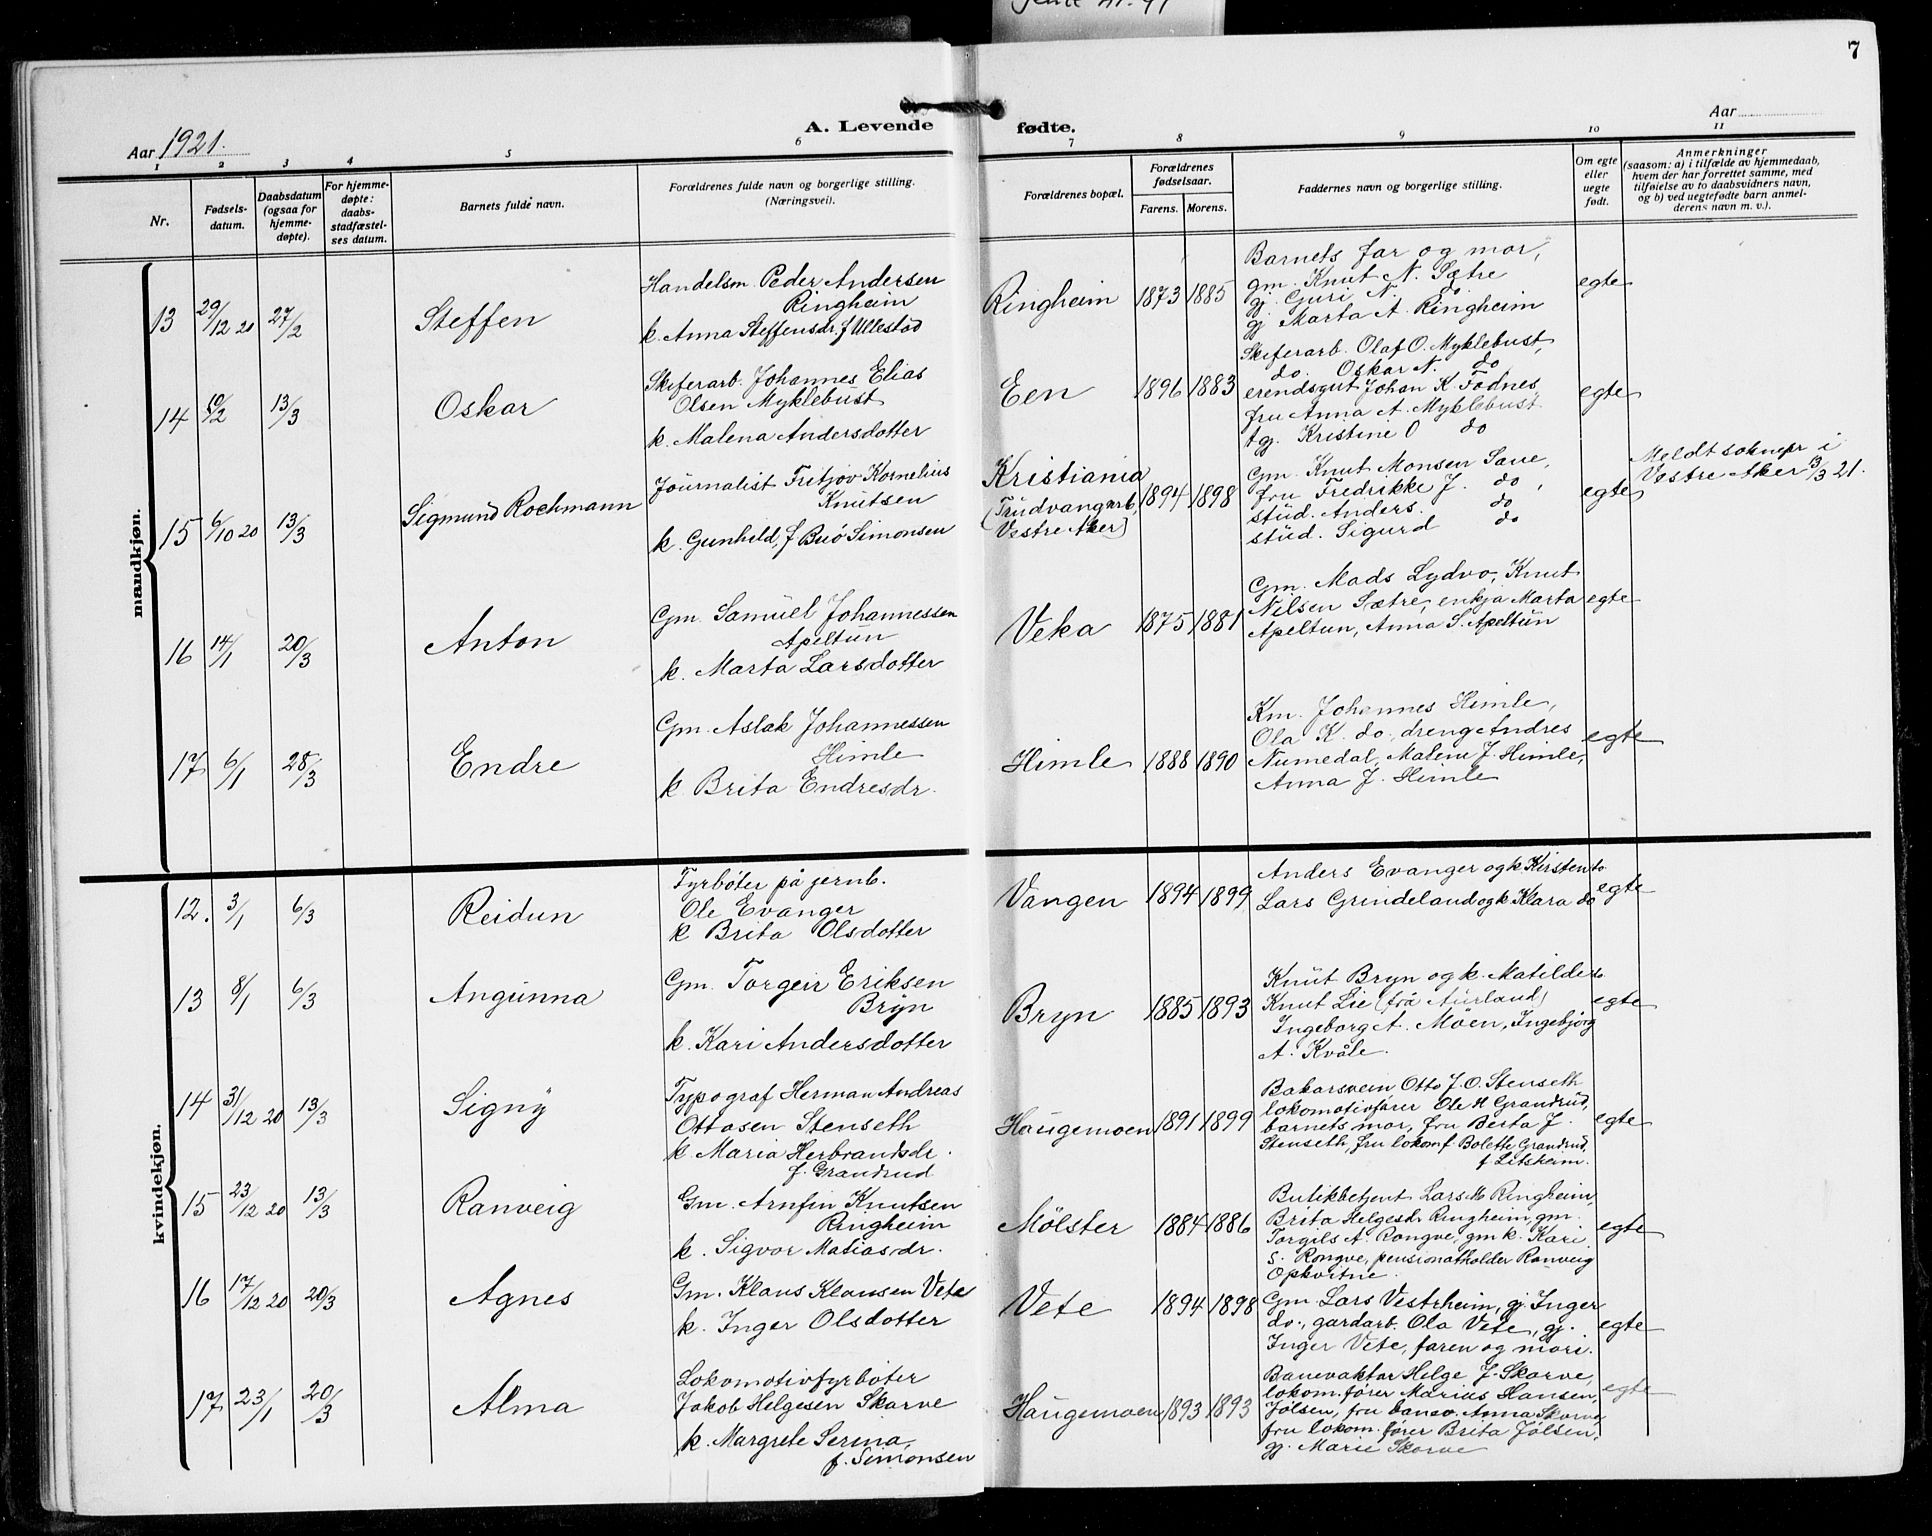 7
Aar 1921.
A. Levende fødte.
Aar
1 2 3 4 5 6 7 8 9 10 11
Nr.
Fødsels-
datum.
Daabsdatum
(ogsaa for
hjemme-
døpte).
For hjemme-
døpte:
daabs-
stadfæstel-
ses datum.
Barnets fulde navn.
Forældrenes fulde navn og borgerlige stilling.
(Næringsvei).
Forældrenes bopæl.
Forældrenes
fødselsaar.
Farens. Morens.
Faddernes navn og borgerlige stilling.
Om egte
eller
uegte
født.
Anmerkninger
(saasom: a) i tilfælde av hjemmedaab,
hvem der har forrettet samme, med
tilføielse av to daabsvidners navn,
og b) ved uegtefødte barn anmel-
derens navn m. v.).
mandkjøn.
13 29/12 20 27/2 Steffen
Handelsm. Peder Andersen
Ringheim
k. Anna Steffensdr. f Ullestad
Ringheim 1873 1885
Barnets far og mor,
gm. Knut N. Sætre
gj. Guri N. do.
gj Marta A. Ringheim
egte
14 10/2 13/3 Oskar
Skiferarb. Johannes Elias
Olsen Myklebust
k. Malena Andersdotter
Een 1896 1883
Skiferarb. Olaf O. Myklebust,
do. Oskar N. do
erendsgut Johan K. Fodnes
fru Anna A. Myklebust
tgj. Kristine O do
egte
15 6/10 20 13/3 Sigmund Rochmann
Journalist Fritjov Kornelius
Knutsen
k. Gunhild, f Buö Simonsen
Kristiania
(Trudvangarb,
Vestre Aker)
1894 1898
Gm. Knut Monsen Saue,
fru Fredrikke J. do,
stud. Anders. do
stud. Sigurd do
egte
Meldt soknepr i
Vestre Aker 13/3 21.
16 14/1 20/3 Anton
Gm. Samuel Johannessen
Apeltun
k. Marta Larsdotter
Veka 1875 1881
Gm. Mads Lydvo, Knut
Nilsen Sætre, enkja Marta
Apeltun, Anna S. Apeltun
egte
17 6/1 28/3 Endre
Gm. Aslak Johannessen
Himle
k. Brita Endresdr.
Himle 1888 1890
Km. Johannes Himle,
Ola K. do, dreng Andres
Numedal, Malene J. Himle,
Anna J. Himle
egte
kvindekjøn.
12. 3/1 6/3 Reidun
Fyrbøter på jernb.
Ole Evanger
k Brita Olsdotter
Vangen 1894 1899
Anders Evanger og k Kirsten do
Lars Grindeland og k Klara do
egte
13 8/1 6/3 Angunna
Gm. Torgeir Eriksen
Bryn
k. Kari Andersdotter
Bryn 1885 1893
Knut Bryn og k. Matilde do
Knut Lie (frå Aurland)
Ingeborg A. Möen, Ingebjørg
A. Kvåle.
egte
14 31/12 20 13/3 Signy
Typograf Herman Andreas
Ottosen Stenseth
k. Maria Herbrandsdr.
f. Grandrud
Haugemoen 1891 1899
Bakarsvein Otto J. O. Stenseth
lokomotivfører Ole H Grandrud,
barnets mor, fru Berta J.
Stenseth, fru lokomf. Bolette Grandrud,
f Litsheim.
egte
15 23/12 20 13/3 Ranveig
Gm. Arnfin Knutsen
Ringheim
k. Sigvor Matiasdr.
Mölster 1884 1886
Butikbetjent Lars M Ringheim,
Brita Helgesdr Ringheim, gm.
Torgils A. Rongve, gm k. Kari
S. Rongve, pensionatholder Ranveig
Opkvitne.
egte
16 17/12 20 20/3 Agnes
Gm. Klaus Klausen Vete
k. Inger Olsdotter
Vete 1894 1898
Gm Lars Vestrheim, gj. Inger
do., gardarb. Ola Vete, gj.
Inger Vete, faren og mori.
egte
17 23/1 20/3 Alma
Lokomotivfyrbøter
Jakob Helgesen Skorve
k. Margrete Serina,
f. Simonsen
Haugemoen 1893 1893
Banevaktar Helge J. Skorve,
lokom.fører Marius Hansen,
Jølsen, fru banev. Anna Skorve
fru lokom.fører Brita Jølsen,
gj. Marie Skorve
egte